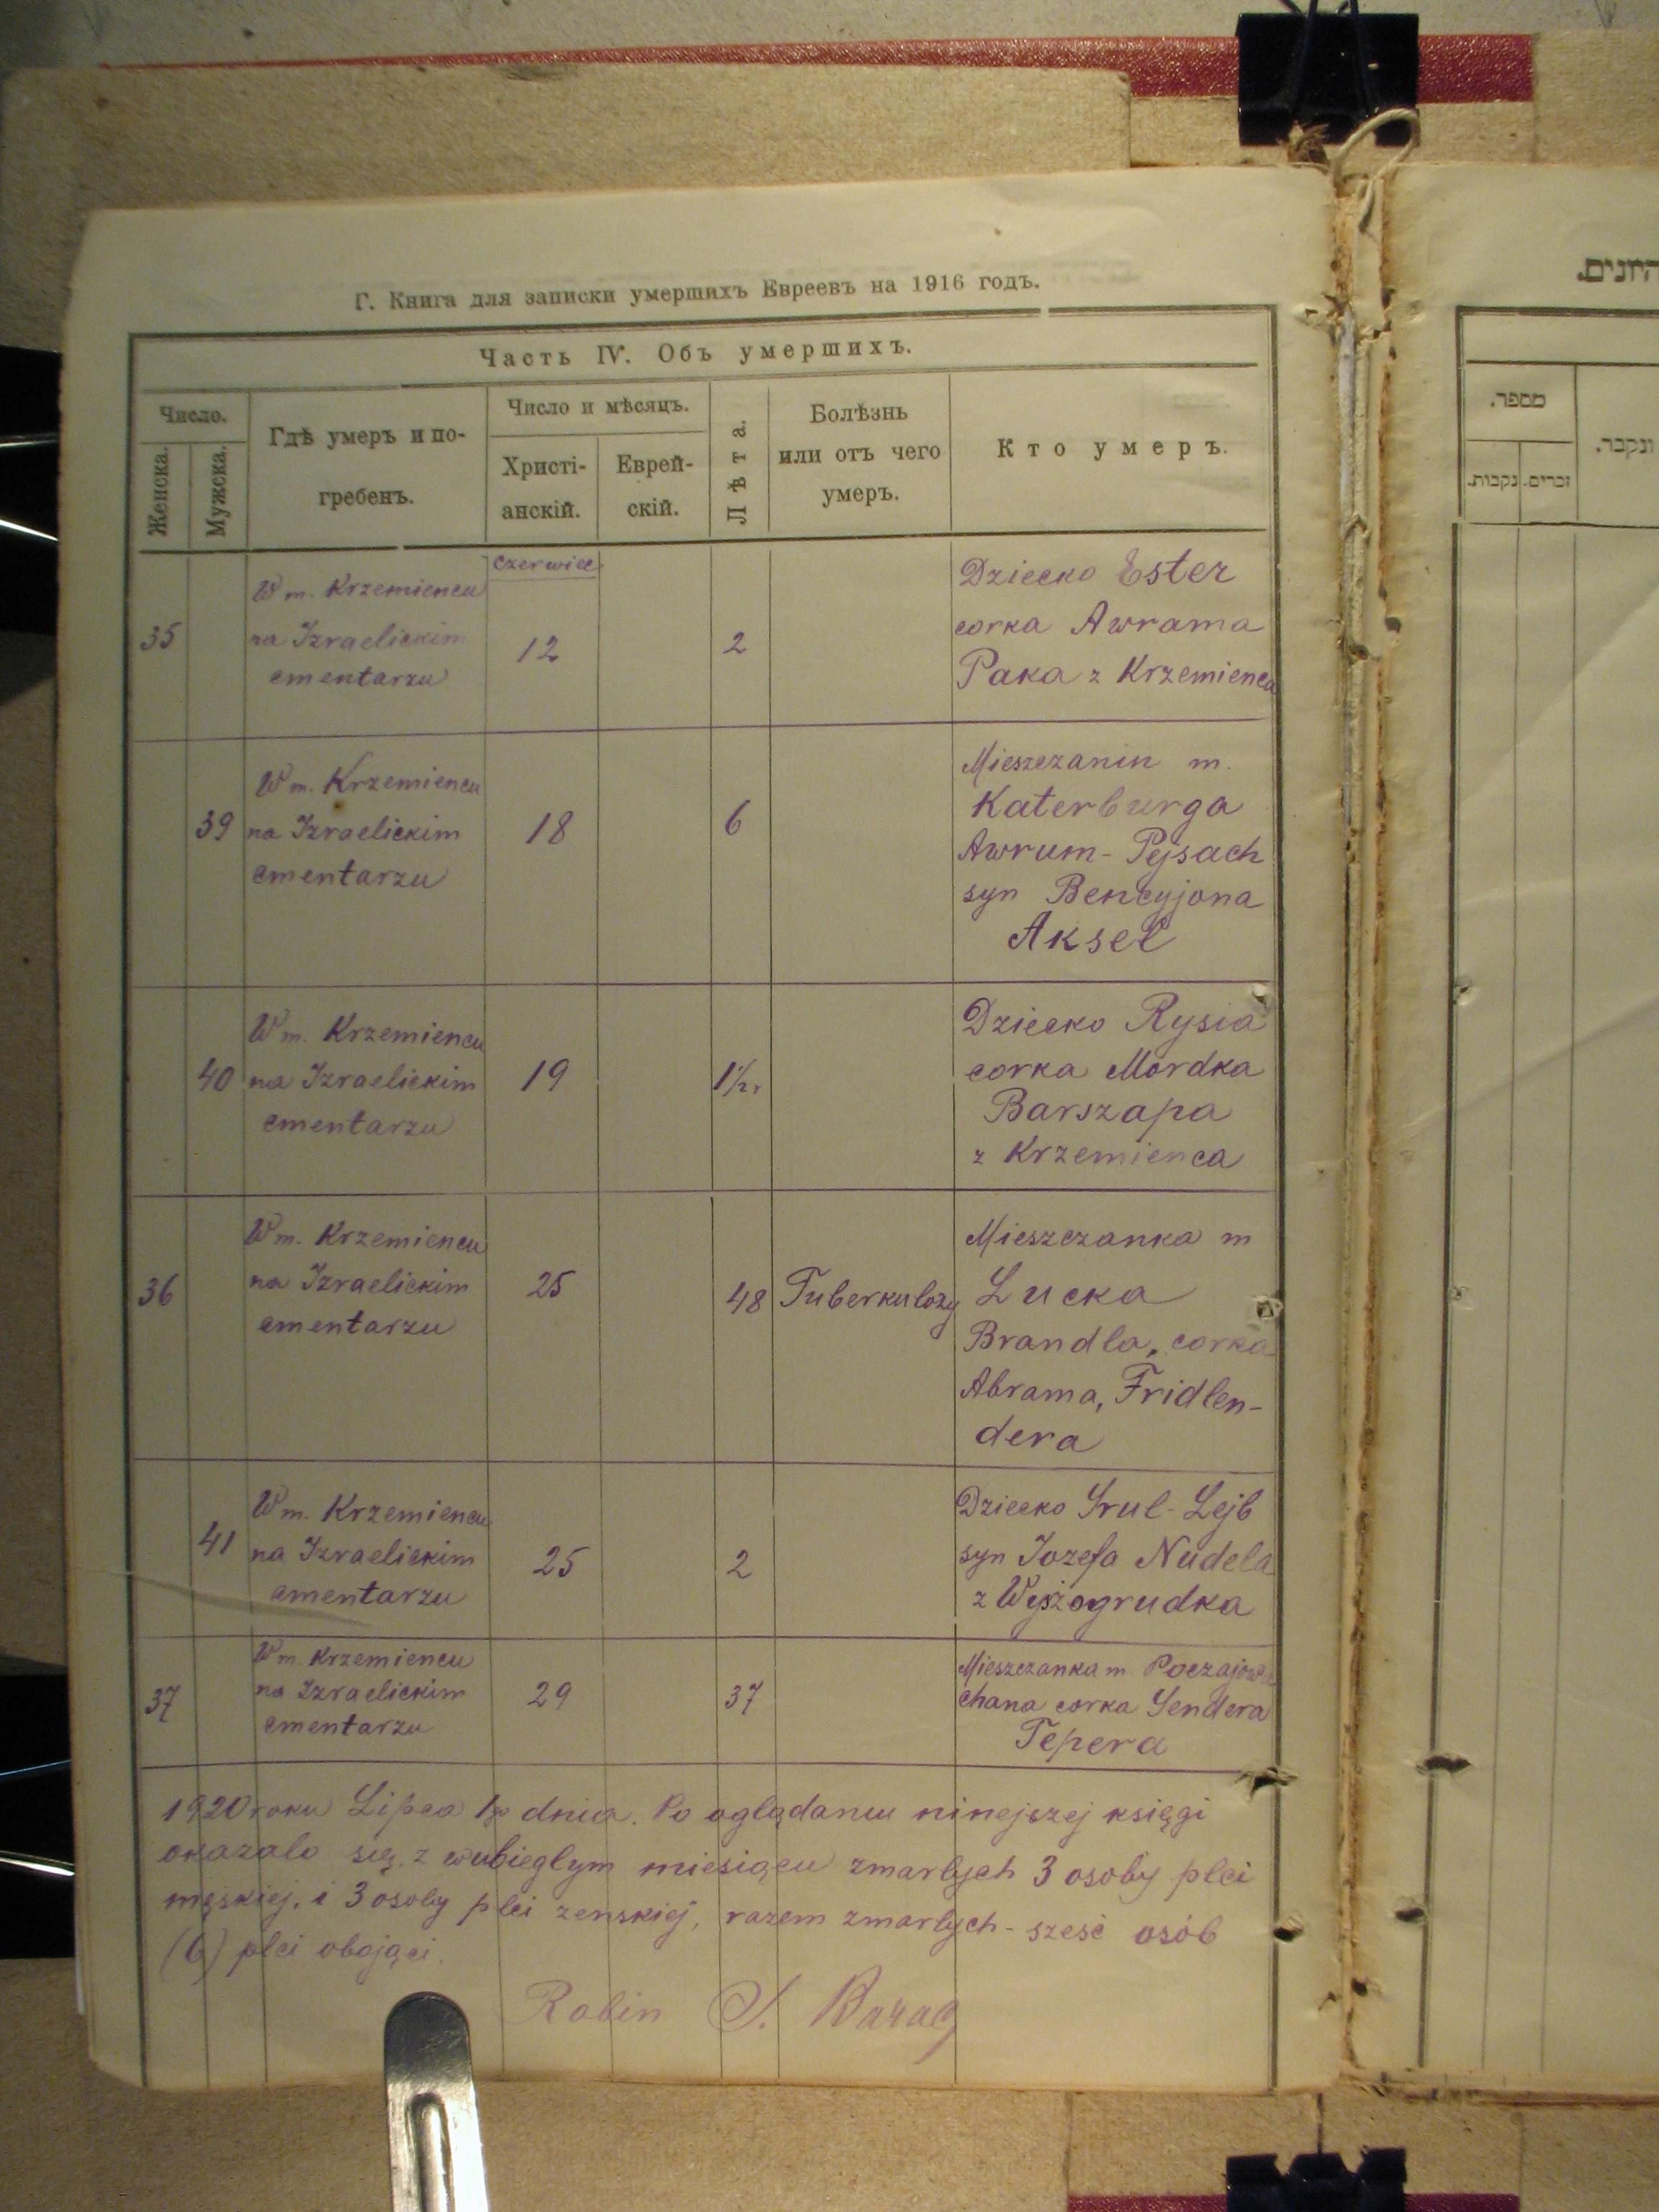 Г. Книга для записки умершихъ Евреевъ на 1916 годъ.
Часть IV. Объ умершихъ.
Число.
Женска.
Мужска.
Гдѣ умеръ и по-
гребенъ.
Число и мѣсяцъ.
Христі-
анскій.
Еврей-
скій.
Лѣта.
Болѣзнь
или отъ чего
умеръ.
Кто умеръ.
czerwiec
35
W m. Krzemiencu
na Izraelickim
cmentarzu
12
2
Dziecko Ester
corka Awrama
Paka z Krzemienca
39
W m. Krzemiencu
na Izraelickim
cmentarzu
18
6
Mieszczanin m.
Katerburga
Awrum-Pejsach
syn Bencyjona
Aksel
40
W m. Krzemiencu
na Izraelickim
cmentarzu
19
1½ r
Dziecko Rysia
corka Mordka
Barszapa
z Krzemienca
36
W m. Krzemiencu
na Izraelickim
cmentarzu
25
48
Tuberkulozy
Mieszczanka m
Lucka
Brandla, corka
Abrama, Fridlen-
dera
41
W m. Krzemiencu
na Izraelickim
cmentarzu
25
2
Dziecko Srul-Lejb
syn Jozefa Nudela
z Wyszogrudka
37
W m. Krzemiencu
na Izraelickim
cmentarzu
29
37
Mieszczanka m Poczajowa
Chana corka Sendera
Tepera
1920 roku Lipca dnia. Po oglądaniu ninejszej księgi
okazalo się z wubieglym miesiącu zmarlych 3 osoby plci
męskiej, i 3 osoby plci zenskiej, razem zmarlych - szesć osób
(6) plci obojąci.
Rabin S. Barac
היונים.
מספר.
ונקבר.
זכרים.
נקבות.